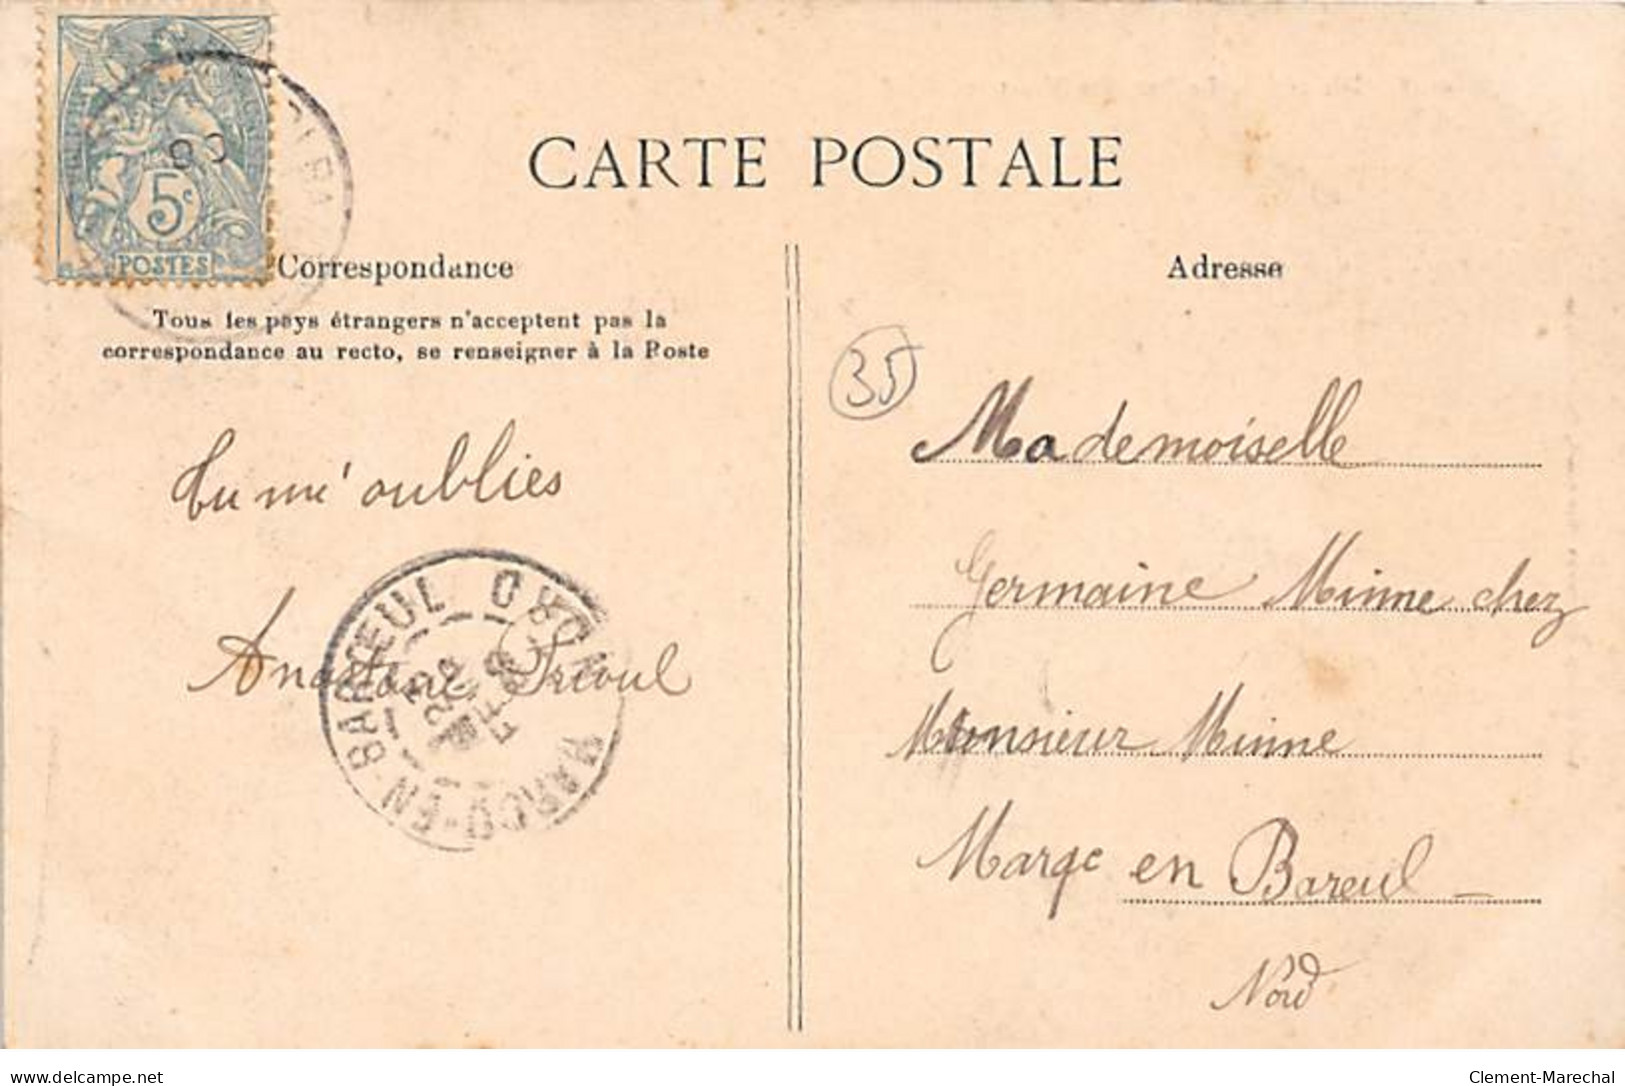 CARTE POSTALE
5c
POSTES
Correspondance
Tous les pays étrangers n'acceptent pas la
correspondance au recto, se renseigner à la Poste
Tu m'oublies
MARCQ-EN-BARŒUL NORD
Adresse
35
Mademoiselle
Germaine Minne chez
Monsieur Minne
Marqe en Bareul
Nord
delcampe.net
Clement-Marechal